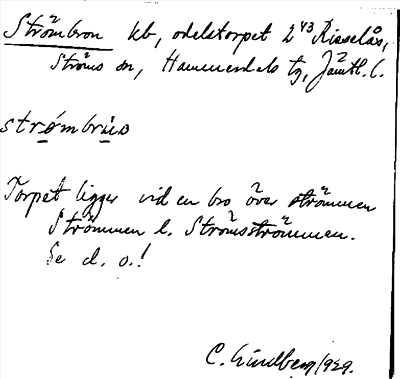 Strömbron kb, odelstorpet 2⁴³ Risselås,
Ströms sn, Hammerdals tg, Jämtl. l.
strømbrus
Torpet ligger vid en bro över strömmen
Strömmen l. Strömsströmmen.
Se d. o.!
C. Lindberg 1929.